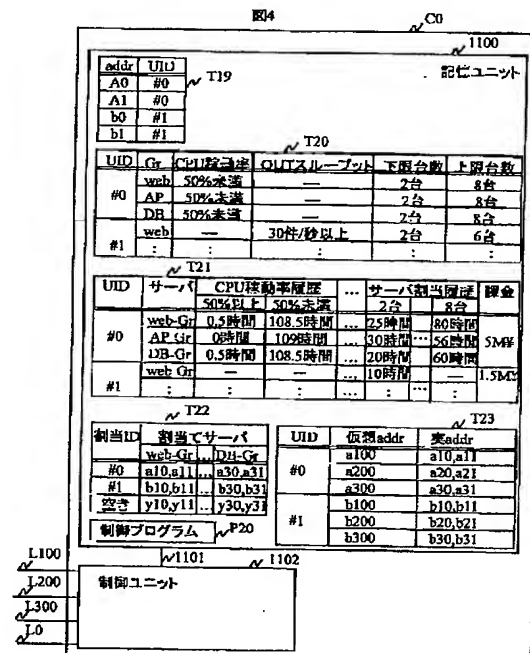 図4
C0
1100
記憶ユニット
addr UID
T19
A0 #0
A1 #0
b0 #1
b1 #1
T20
UID Gr CPU稼動率 OUTスループット 下限台数 上限台数
web 50%未満 — 2台 8台
#0 AP 50%未満 — 2台 8台
DB 50%未満 — 2台 8台
#1 web — 30件/秒以上 2台 6台
: : : : :
T21
UID サーバ CPU稼動率履歴 … サーバ割当履歴 課金
50%以上 50%未満 2台 8台
web-Gr 0.5時間 108.5時間 … 25時間 80時間
#0 AP-Gr 0時間 109時間 … 30時間 … 56時間 5M¥
DB-Gr 0.5時間 108.5時間 … 20時間 60時間
#1 web Gr — — … 10時間 — 1.5M¥
: : : … : … :
T22
割当ID 割当てサーバ
web-Gr … DB-Gr
#0 a10,a11 … a30,a31
#1 b10,b11 … b30,b31
空き y10,y11 … y30,y31
T23
UID 仮想addr 実addr
a100 a10,a11
#0 a200 a20,a21
a300 a30,a31
b100 b10,b11
#1 b200 b20,b21
b300 b30,b31
制御プログラム P20
1101
1102
制御ユニット
L100
L200
L300
L0